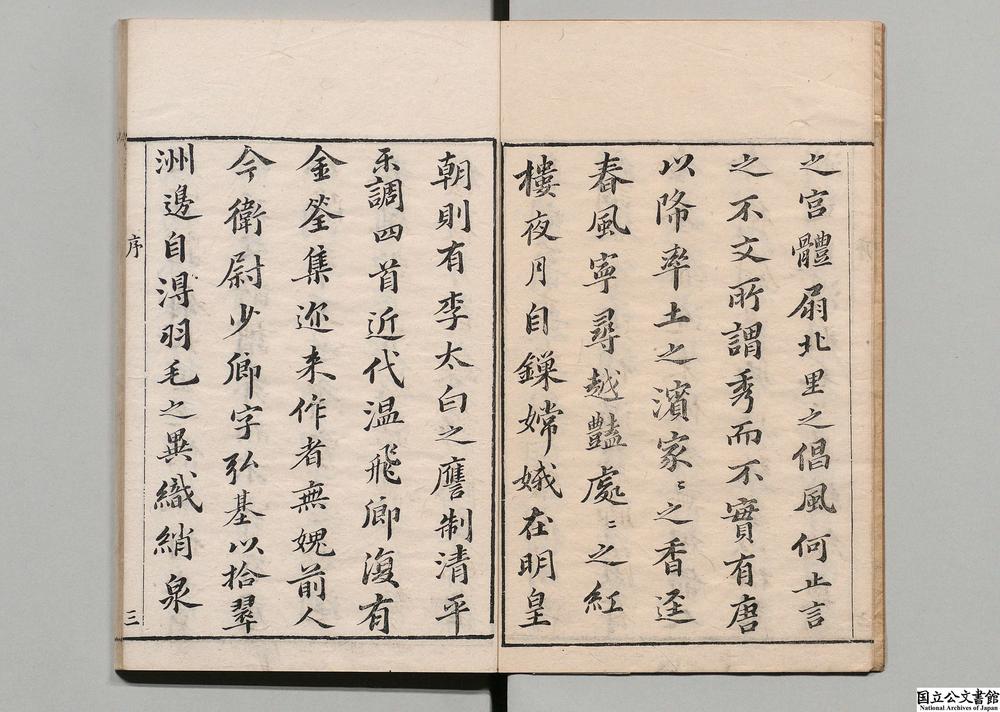 之宮體扇北里之倡風何止言
之不文所謂秀而不實有唐
以降率土之濱家〻之香逕
春風寧尋越豔處〻之紅
樓夜月自鏁嫦娥在明皇
朝則有李太白之應制清平
樂調四首近代溫飛卿復有
金筌集迩来作者無媿前人
今衛尉少卿字弘基以拾翠
洲邊自淂羽毛之異織綃泉
序
三
国立公文書館
National Archives of Japan